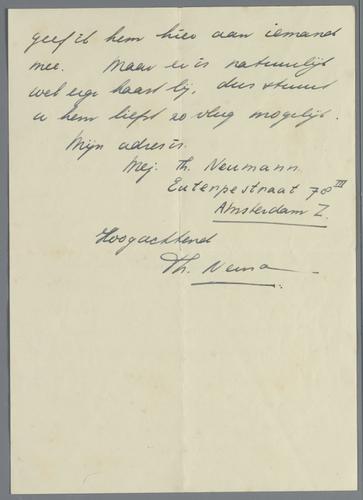 geef ik hem hier aan iemand
mee. Maar er is natuurlijk
wel erge haast bij, dus stuurt
u hem liefst zo vlug mogelijk.
Mijn adres is
Mej. Th. Neumann
Euterpestraat 78 III
Amsterdam Z.
Hoogachtend
Th. Neuma